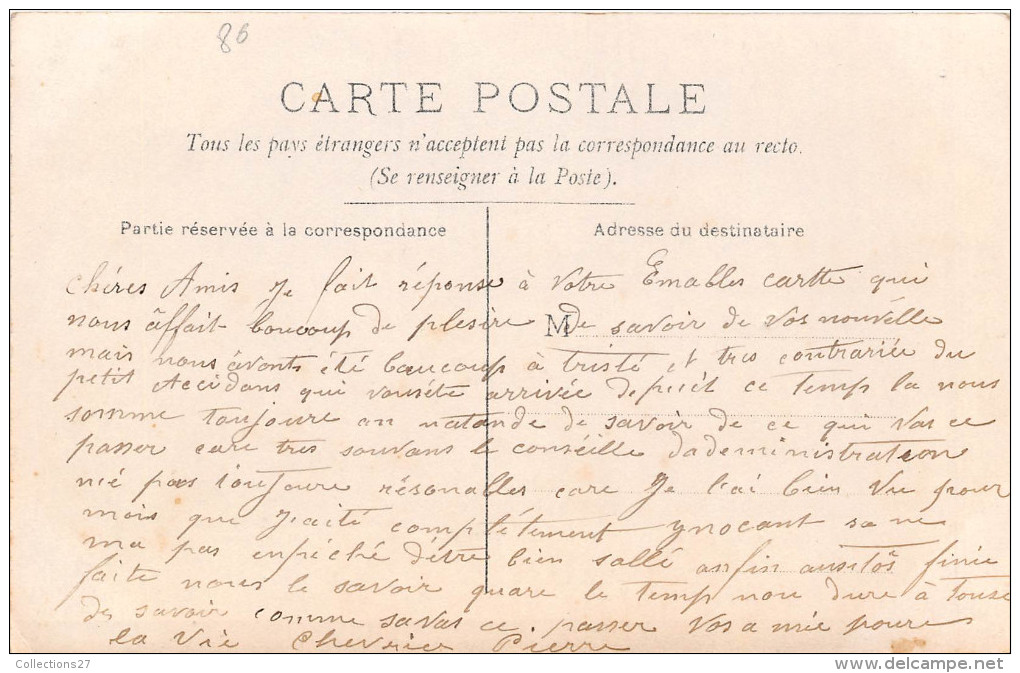 86
CARTE POSTALE
Tous les pays étrangers n'acceptent pas la correspondance au recto.
(Se renseigner à la Poste).
Partie réservée à la correspondance
Adresse du destinataire
M
chéres Amis Je fait réponse à votre Emables cartte qui
nous âffait boucoup de plesire de savoir de vos nouvélle
mais nous âvont été baucoup à tristé et tres contrariée du
petit Accidans qui vouséte arrivée depuit ce temps la nous
somme toujoure an natande de savoir de ce qui vas ce
passer care tres souvans le conséille dadeministration
nié pas toujoure résonalles care Je l'ai bien vu pour
mois que J'aité complétement ynocant sa ne
ma pas enpéché dètre bien sallé anfin ausitôs finie
faite nous le savoir quare le temp nou dure à tousse
de savoir comme sa vas ce passer vos amée poure
la vie Chevrier Pierre
Collections27
delcampe.net